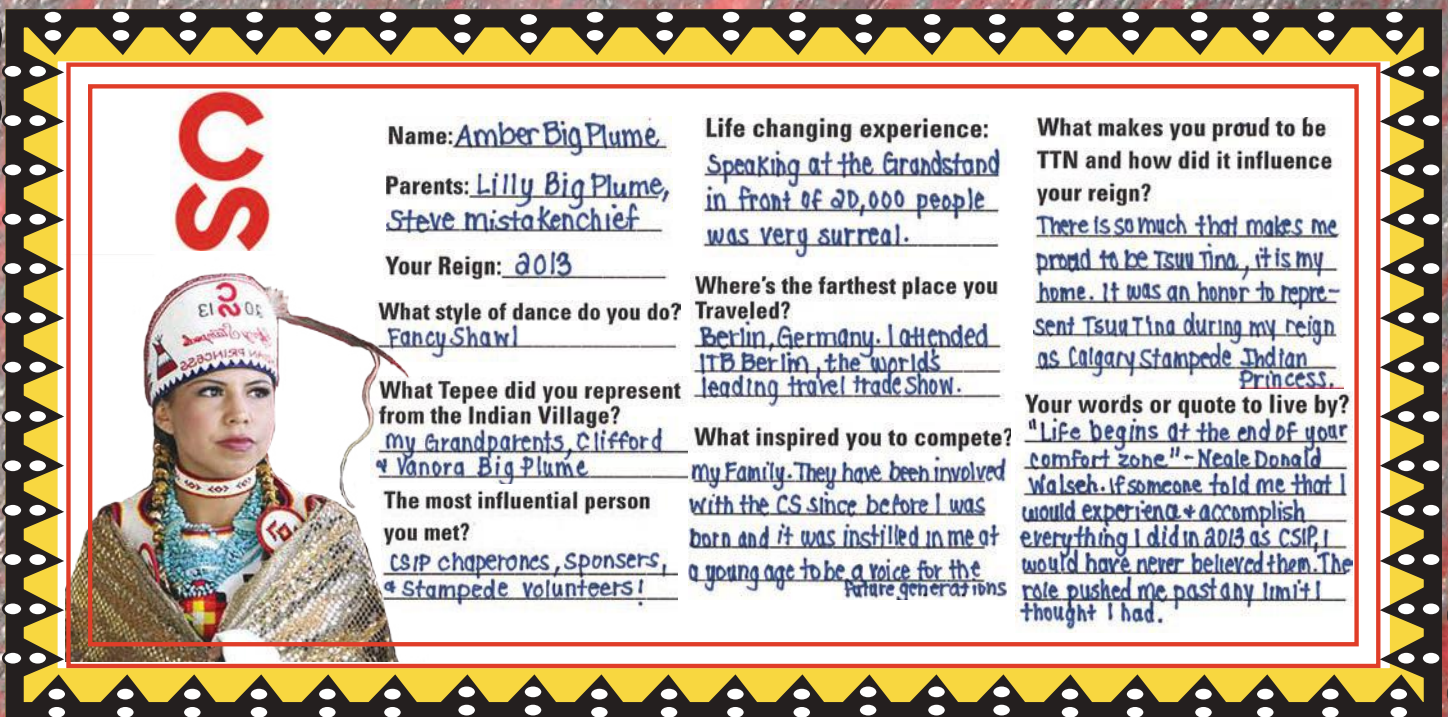 CS
Name: Amber Big Plume
Parents: Lilly Big Plume,
Steve mistakenchief
Your Reign: 2013
What style of dance do you do?
Fancy Shawl
What Tepee did you represent
from the Indian Village?
my Grandparents, Clifford
& Vanora Big Plume
The most influential person
you met?
CSIP chaperones, Sponsers,
& Stampede volunteers!
Life changing experience:
Speaking at the Grandstand
in front of 20,000 people
was very surreal.
Where's the farthest place you
Traveled?
Berlin, Germany. I attended
ITB Berlin, the world's
leading travel trade show.
What inspired you to compete?
my Family. They have been involved
with the CS since before I was
born and it was instilled in me at
a young age to be a voice for the
future generations
What makes you proud to be
TTN and how did it influence
your reign?
There is so much that makes me
proud to be Tsuu Tina, it is my
home. It was an honor to repre-
sent Tsuu Tina during my reign
as Calgary Stampede Indian
Princess.
Your words or quote to live by?
"Life begins at the end of your
comfort zone" - Neale Donald
Walsch. If someone told me that I
would experience & accomplish
everything I did in 2013 as CSIP, I
would have never believed them. The
role pushed me past any limit I
thought I had.
20 CS 13